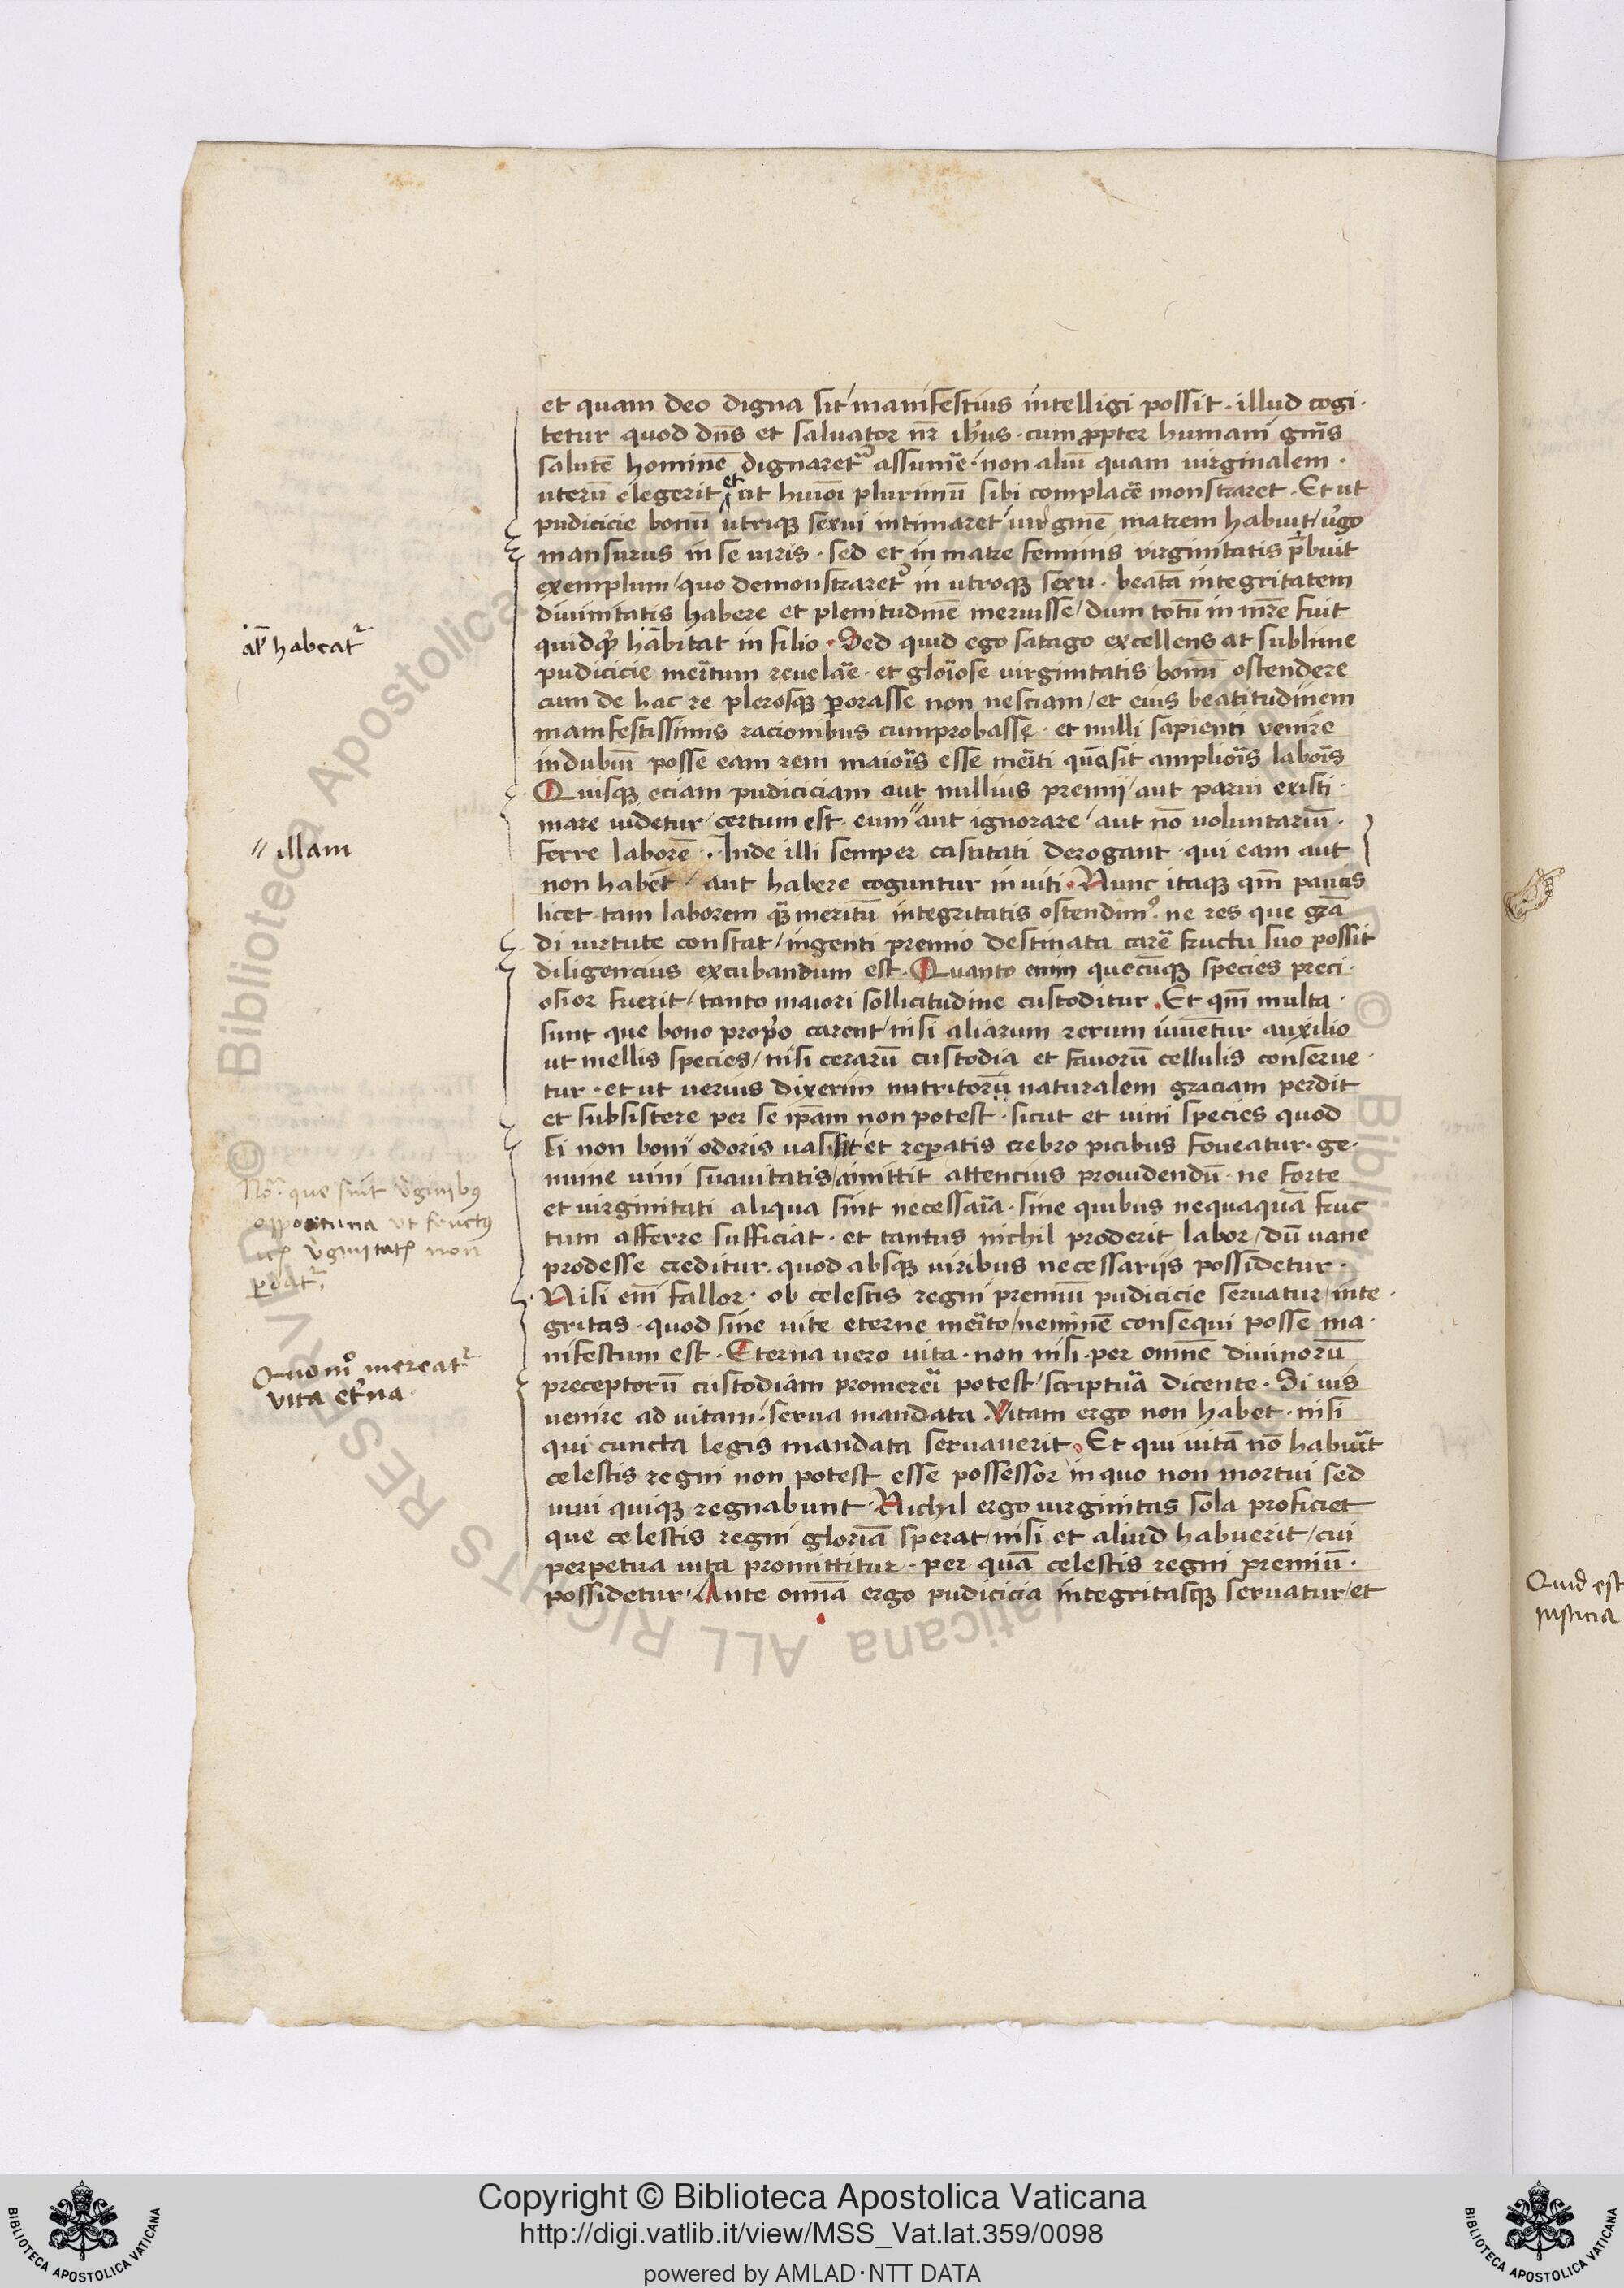 et quam deo digna sit manifestius intelligi possit · illud cogi·
tetur quod dn̄s et saluator nr̄ ih̄us · cum ꝓpter humani gn̄is
salutē hominē dignaret᷑ assumē · non aliū quam virginalem ·
uterū elegerit et ut huiꝰmōi plurimū sibi complacē monstraret · Et ut
pudicicie bonū utriqꝫ sexui intimaret / uirginē matrem habuit / ùgo
mansurus in se uiris · sed et in matre feminis virginitatis p̄buit
exemplum / quo demonstraret᷑ in utroqꝫ sexu · beatā integritatem
diuinitatis habere et plenitudinē meruisse / dum totū in mr̄e fuit
quidqd̛ habitat in filio · Sed quid ego satago excellens at sublime
pudicicie meritum reuelar̄e · et glōiose virginitatis bonū ostendere
cum de hac re plerosqꝫ ꝑorasse non nesciam / et eius beatitudinem
manifestissimis racionibus cumprobasse · et nulli sapienti venire
in dubiū posse eam rem maiōis esse mēiti quā sit ampliōis labōis
Quisqꝫ eciam pudiciciam aut nullius premij / aut parui existi·
mare uidetur / certum est · eum // aut ignorare / aut nō voluntariū ·
ferre laborē · Inde illi semper castitati derogant · qui eam aut
non habēt / aut habere coguntur inuiti · Nunc itaqꝫ qm̄ paucis
licet tam laborem qꝫ meritū integritatis ostendimꝰ · ne res que grā
di uirtute constat / ingenti premio destinata carē fructu suo possit
diligencius excubandum est · Quanto enim quecūqꝫ species preci·
osior fuerit / tanto maiori sollicitudine custoditur · Et qm̄ multa ·
sunt que bono prop̛o carent / nisi aliarum rerum iuuentur auxilio
ut mellis species / nisi cerarū custodia et fauorū cellulis conserue·
tur · et ut uerius dixerim nutritorū naturalem graciam perdit
et subsistere per se ip̄am non potest · sicut et uini species quod
si non boni odoris uas sit / et reꝑatis crebro picibus foueatur · ge·
nuine uini suauitatis / amittit attencius prouidendū · ne forte
et virginitati aliqua sint necessāia · sine quibus nequaquā fruc
tum afferre sufficiat · et tantus nichil proderit labor / dū uane
prodesse creditur · quod absqꝫ uiribus necessarijs possidetur ·
Nisi eni̅ fallor · ob celestis regni premiū pudicicie seruatur / inte·
gritas · quod sine uite eterne mēito / neminē consequi posse ma·
nifestum est · Eterna uero uita · non nisi per omnē diuinorū
preceptorū custodiam promerēi potest / scriptūa dicente · Si uis
uenire ad uitam · serua mandata · Vitam ergo non habet · nisi
qui cuncta legis mandata seruauerit · Et qui uitā nō habūit
celestis regni non potest esse possessor in quo non mortui sed
uiui quiqꝫ regnabunt · Nichil ergo uirginitas sola proficiet
que celestis regni gloriā sperat / nisi et aliud habuerit / cui
perpetua uita promittitur · per quā celestis regni premiū ·
possidetur · Ante omnā ergo pudicicia integritasqꝫ seruatur / et
al̄ habeat᷑
// illam
No᷑ · que sint ùginibꝰ
opportuna ut fructꝰ
ùginitatꝭ non
ꝑdat᷑
Quomo͛ mereat᷑
vita et̛na
Quid est
iusticia
© Biblioteca Apostolica Vaticana ALL RIGHTS RESERVED
Copyright © Biblioteca Apostolica Vaticana
http://digi.vatlib.it/view/MSS_Vat.lat.359/0098
powered by AMLAD·NTT DATA
BIBLIOTECA APOSTOLICA VATICANA
BIBLIOTECA APOSTOLICA VATICANA